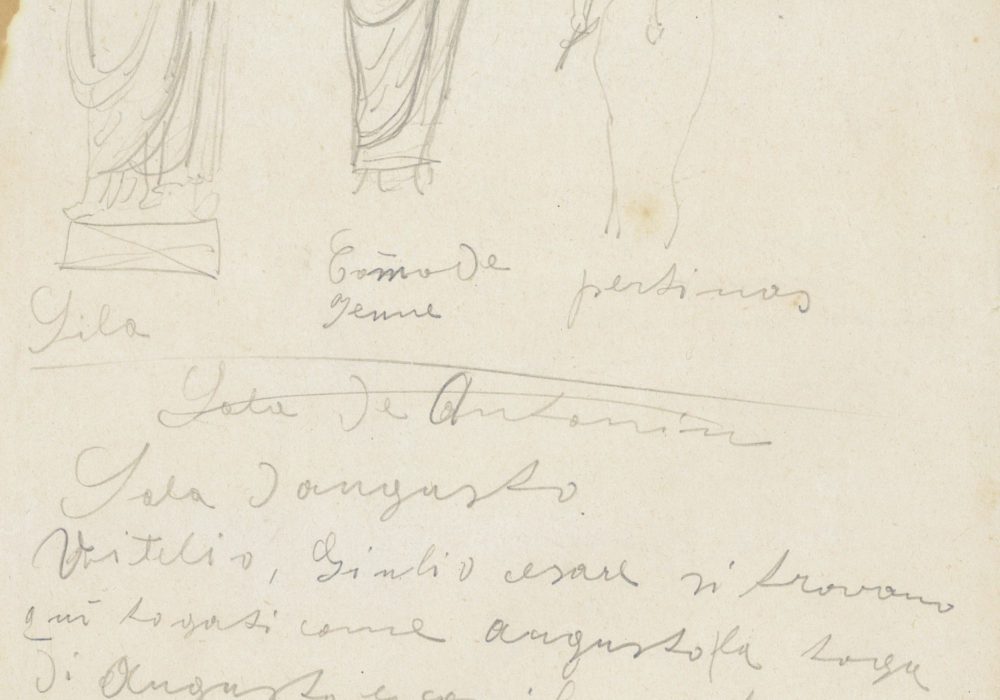 Comode
Jeune
pertinas
Sila
Sala de Antonin
Sala d augusto
Vitelio, Giulio cesare si trovano
qui togati come augusto (la toga
di Augusto e